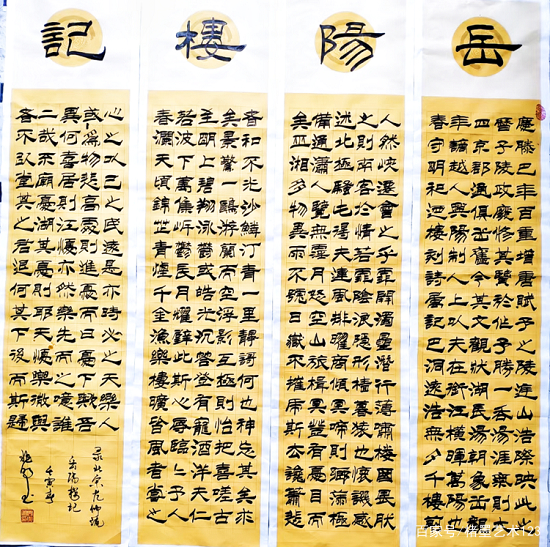 岳陽樓記
慶曆四年春
滕子京謫守
巴陵郡越明
年政通人和
百廢俱興乃
重修岳陽樓
增其舊制刻
唐賢今人詩
賦於其上屬
予作文以記
之予觀夫巴
陵勝狀在洞
庭一湖銜遠
山吞長江浩
浩湯湯橫無
際涯朝暉夕
陰氣象萬千
此則岳陽樓
之大觀也前
人之述備矣
然則北通巫
峽南極瀟湘
遷客騷人多
會於此覽物
之情得無異
乎若夫霪雨
霏霏連月不
開陰風怒號
濁浪排空日
星隱曜山嶽
潛形商旅不
行檣傾楫摧
薄暮冥冥虎
嘯猿啼登斯
樓也則有去
國懷鄉憂讒
畏譏滿目蕭
然感極而悲
者矣至若春
和景明波瀾
不驚上下天
光一碧萬頃
沙鷗翔集錦
鱗游泳岸芷
汀蘭郁郁青
青而或長煙
一空皓月千
里浮光躍金
靜影沉璧漁
歌互答此樂
何極登斯樓
也則有心曠
神怡寵辱皆
忘把酒臨風
其喜洋洋者
矣嗟夫予嘗
求古仁人之
心或異二者
之為何哉不
以物喜不以
己悲居廟堂
之高則憂其
民處江湖之
遠則憂其君
是進亦憂退
亦憂然則何
時而樂耶其
必曰先天下
之憂而憂後
天下之樂而
樂歟噫微斯
人吾誰與歸
錄北宋范仲淹
岳陽樓記
壬寅年